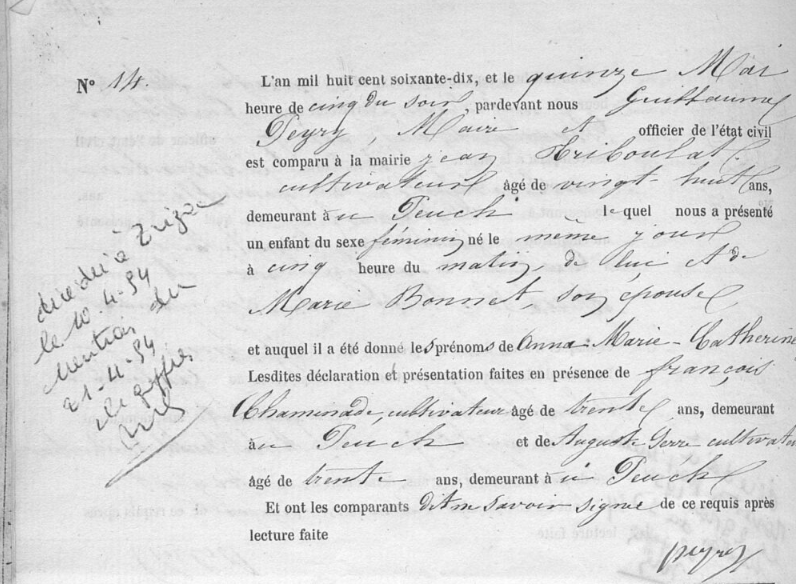 N° 14.
L'an mil huit cent soixante-dix, et le quinze Mai
heure de cinq du soir, pardevant nous Guillaume
Peyry, Maire et officier de l'état civil
est comparu à la mairie jean Triboulat
cultivateur âgé de vingt-huit ans,
demeurant à u Peuch le quel nous a présenté
un enfant du sexe féminin né le meme jour
à cinq heure du matin, de lui et de
Marie Bonnet, son épouse
et auquel il a été donné les prénoms de Anna-Marie-Catherine
Lesdites déclaration et présentation faites en présence de françois
Chamenade, cultivateur âgé de trente ans, demeurant
à u Peuch et de Auguste Serre cultivateur
âgé de trente ans, demeurant à u Peuch
Et ont les comparants dit ne savoir signe de ce requis après
lecture faite
peyre
le 10.4.54
mention du
21.4.54